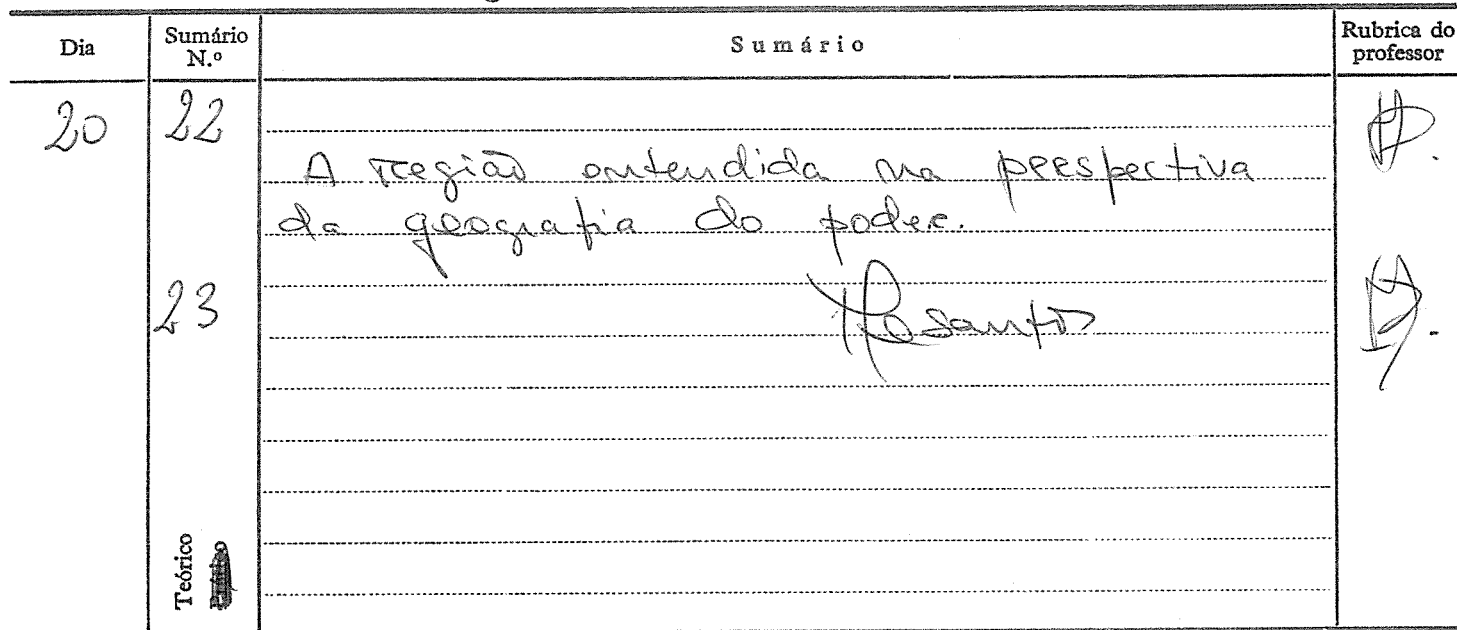 Dia Sumário N.º Sumário Rubrica do professor
20 22
A região entendida na perspectiva
da geografia do poder.
23
Teórico